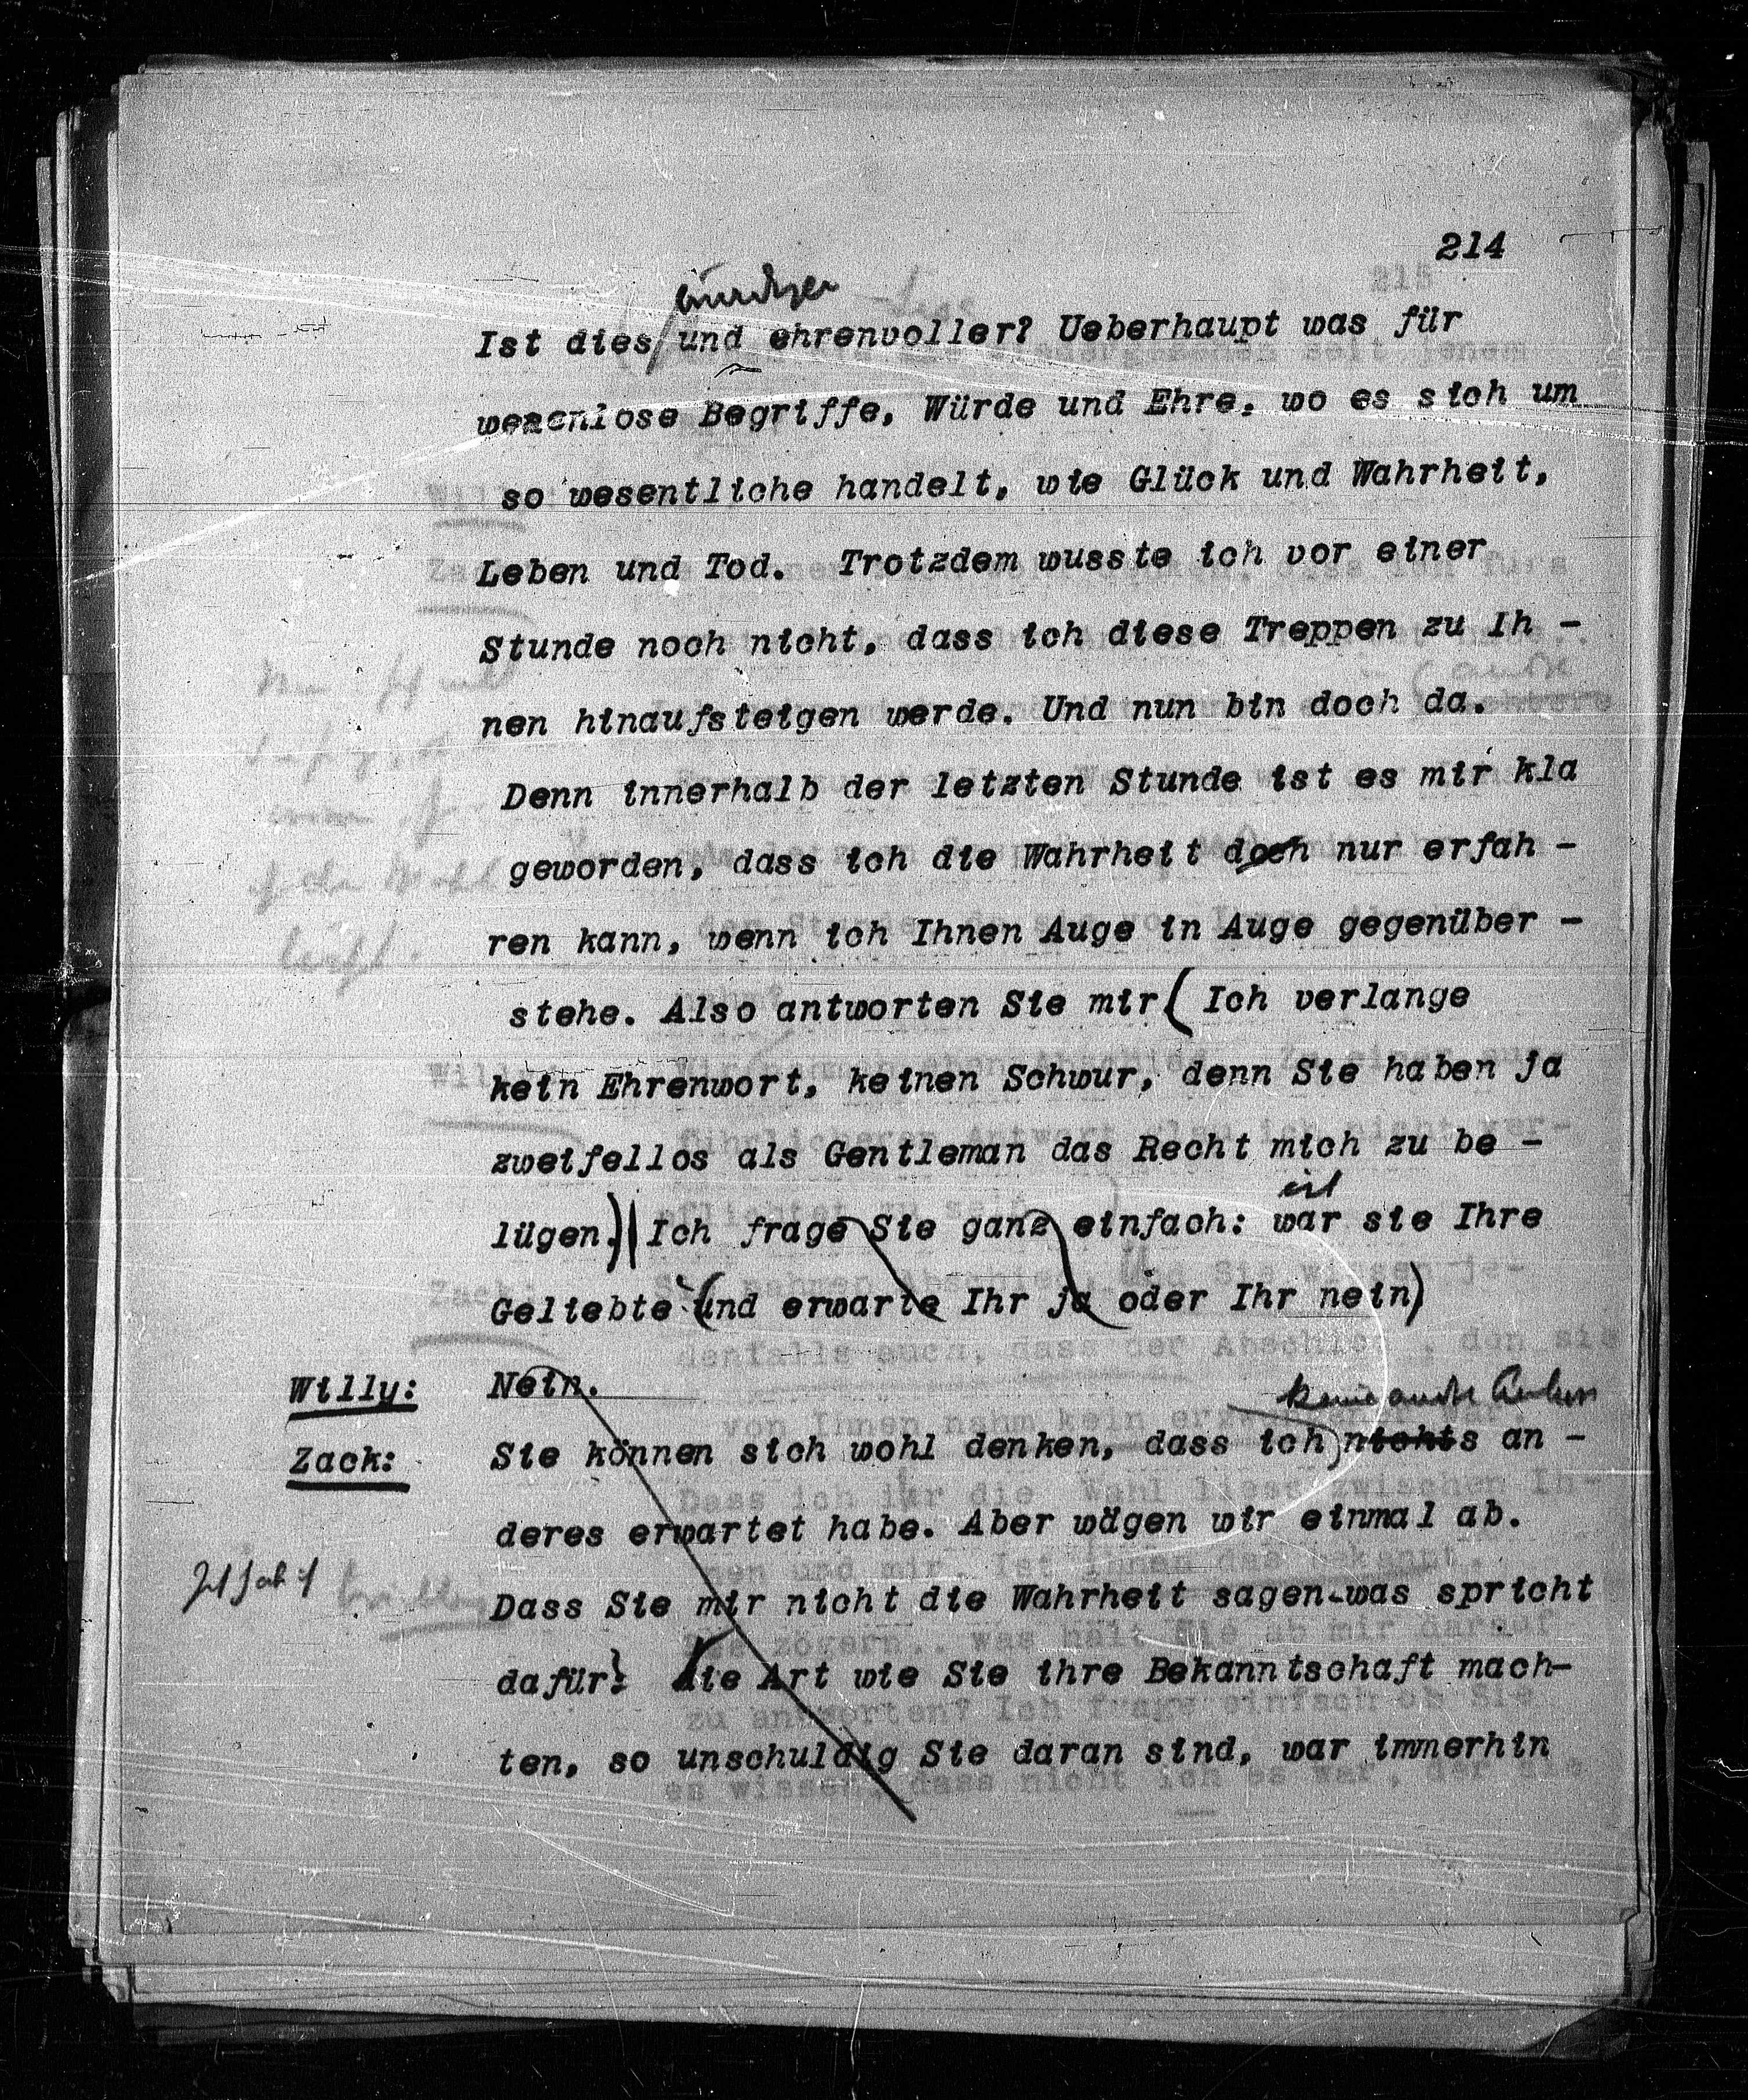 214
würdiger
Ist dies und ehrenvoller? Ueberhaupt was für
wesenlose Begriffe, Würde und Ehre, wo es sich um
so wesentliche handelt, wie Glück und Wahrheit,
Leben und Tod. Trotzdem wusste ich vor einer
Stunde noch nicht, dass ich diese Treppen zu Ih -
nen hinaufsteigen werde. Und nun bin doch da.
Denn innerhalb der letzten Stunde ist es mir kla
geworden, dass ich die Wahrheit doch nur erfah -
ren kann, wenn ich Ihnen Auge in Auge gegenüber -
stehe. Also antworten Sie mir ( Ich verlange
kein Ehrenwort, keinen Schwur, denn Sie haben ja
zweifellos als Gentleman das Recht mich zu be -
ist
lügen.) Ich frage Sie ganz einfach: war sie Ihre
Geliebte (und erwarte Ihr ja oder Ihr nein)
Willy: Nein.
keine andre Antwort
Zack: Sie können sich wohl denken, dass ich nichts an -
deres erwartet habe. Aber wägen wir einmal ab.
Dass Sie mir nicht die Wahrheit sagen-was spricht
dafür? Die Art wie Sie ihre Bekanntschaft mach-
ten, so unschuldig Sie daran sind, war immerhin